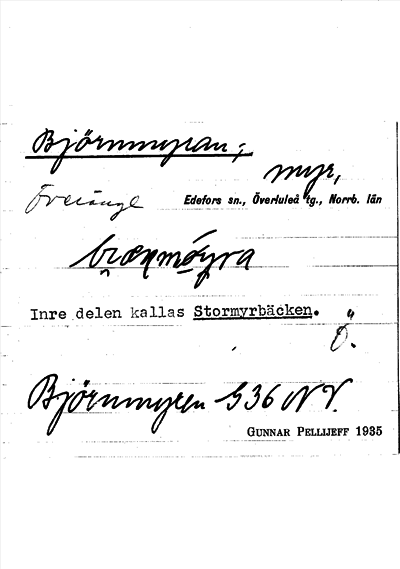 Björnmyran,
myr,
Överänge Edefors sn., Överluleå tg., Norrb. län
Inre delen kallas Stormyrbäcken.
Ö.
Björnmyren 936 NV.
GUNNAR PELLIJEFF 1935